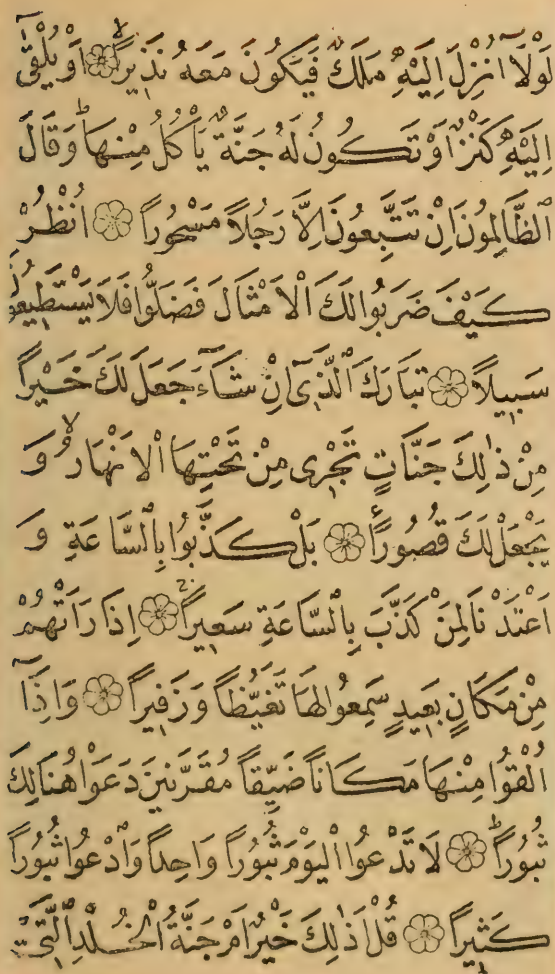 لَوْلَآ اُنْزِلَ اِلَيْهِ مَلَكٌ فَيَكُونَ مَعَهُ نَذِيرًاۙ ۝ اَوْ يُلْقٰٓى
اِلَيْهِ كَنْزٌ اَوْ تَكُونُ لَهُ جَنَّةٌ يَاْكُلُ مِنْهَاۜ وَقَالَ
الظَّالِمُونَ اِنْ تَتَّبِعُونَ اِلَّا رَجُلًا مَسْحُورًا ۝ اُنْظُرْ
كَيْفَ ضَرَبُوا لَكَ الْاَمْثَالَ فَضَلُّوا فَلَا يَسْتَطِيعُونَ
سَبِيلًا ۝ تَبَارَكَ الَّذِٓى اِنْ شَآءَ جَعَلَ لَكَ خَيْرًا
مِنْ ذٰلِكَ جَنَّاتٍ تَجْرِى مِنْ تَحْتِهَا الْاَنْهَارُۙ وَ
يَجْعَلْ لَكَ قُصُورًا ۝ بَلْ كَذَّبُوا بِالسَّاعَةِ وَ
اَعْتَدْنَا لِمَنْ كَذَّبَ بِالسَّاعَةِ سَعِيرًاۚ ۝ اِذَا رَاَتْهُمْ
مِنْ مَكَانٍ بَعِيدٍ سَمِعُوا لَهَا تَغَيُّظًا وَزَفِيرًا ۝ وَاِذَٓا
اُلْقُوا مِنْهَا مَكَانًا ضَيِّقًا مُقَرَّنِينَ دَعَوْا هُنَالِكَ
ثُبُورًاۜ ۝ لَا تَدْعُوا الْيَوْمَ ثُبُورًا وَاحِدًا وَادْعُوا ثُبُورًا
كَثِيرًا ۝ قُلْ اَذٰلِكَ خَيْرٌ اَمْ جَنَّةُ الْخُلْدِ الَّتِى